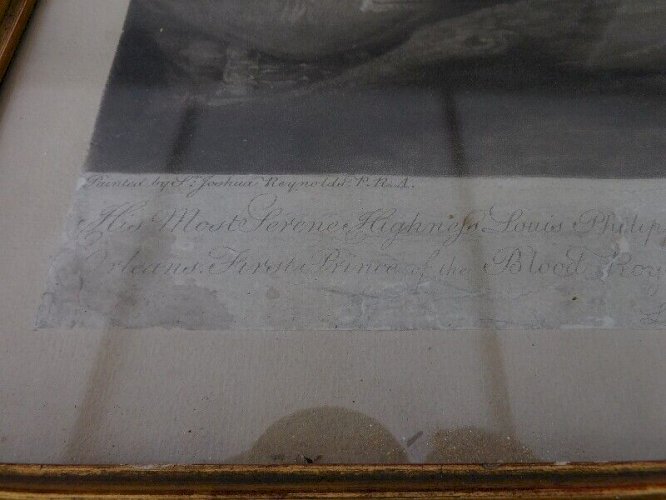 Painted by Sr. Joshua Reynolds P.R.A.
His Most Serene Highness Louis Philip
Orleans. First Prince of the Blood Roy